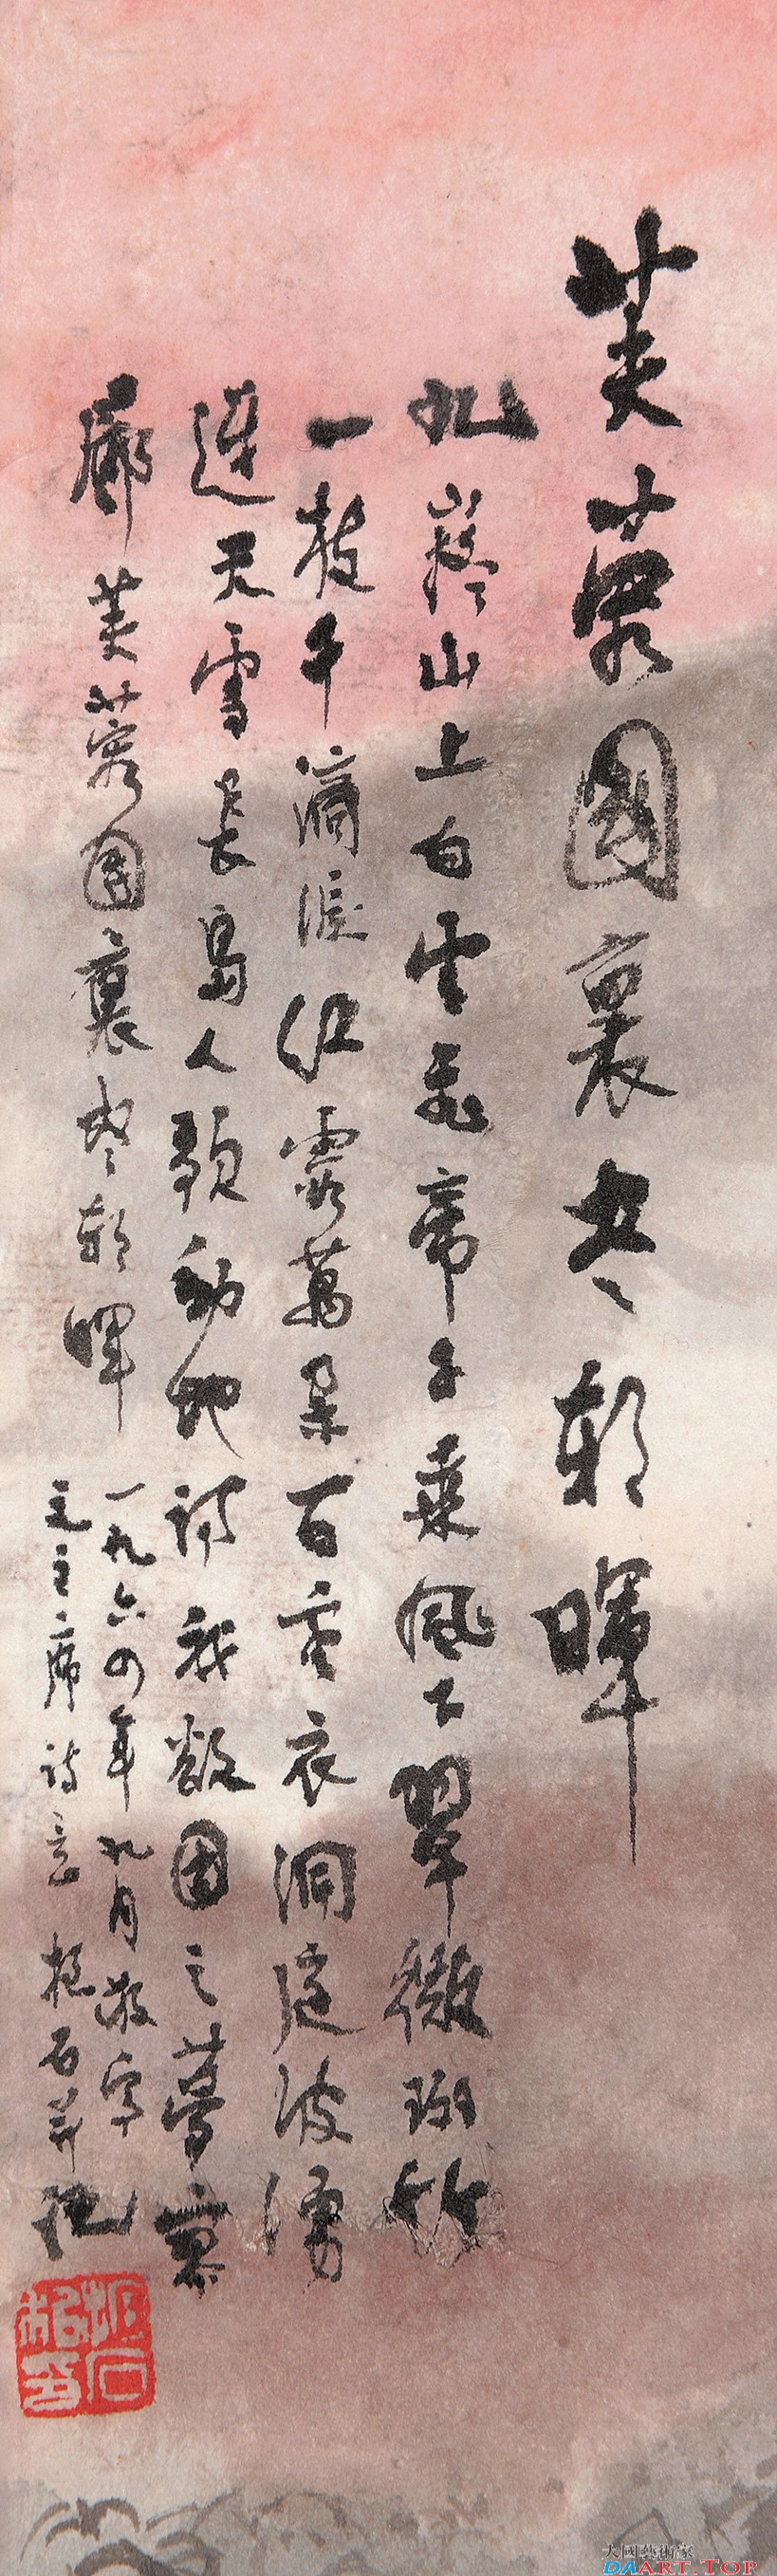 芙蓉國裏盡朝暉
九嶷山上白雲飛帝子乘風下翠微斑竹
一枝千滴淚紅霞萬朵百重衣洞庭波湧
連天雪長島人歌動地詩我欲因之夢寥
廓芙蓉國裏盡朝暉
一九六四年九月敬寫
毛主席诗意 抱石并記
抱石私印
大國藝術家
DAART.TOP